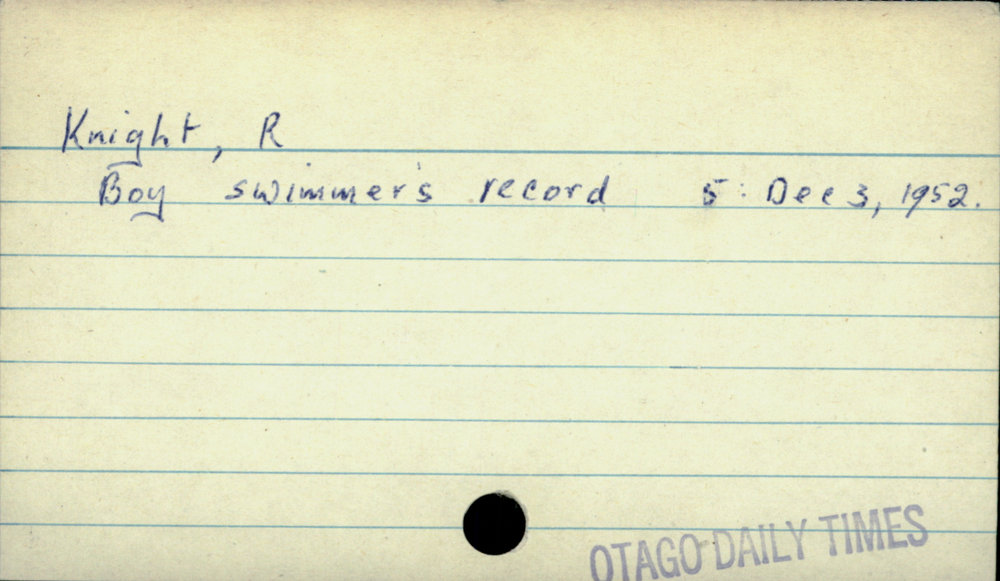 Knight, R
Boy swimmer's record 5: Dec 3, 1952.
OTAGO DAILY TIMES